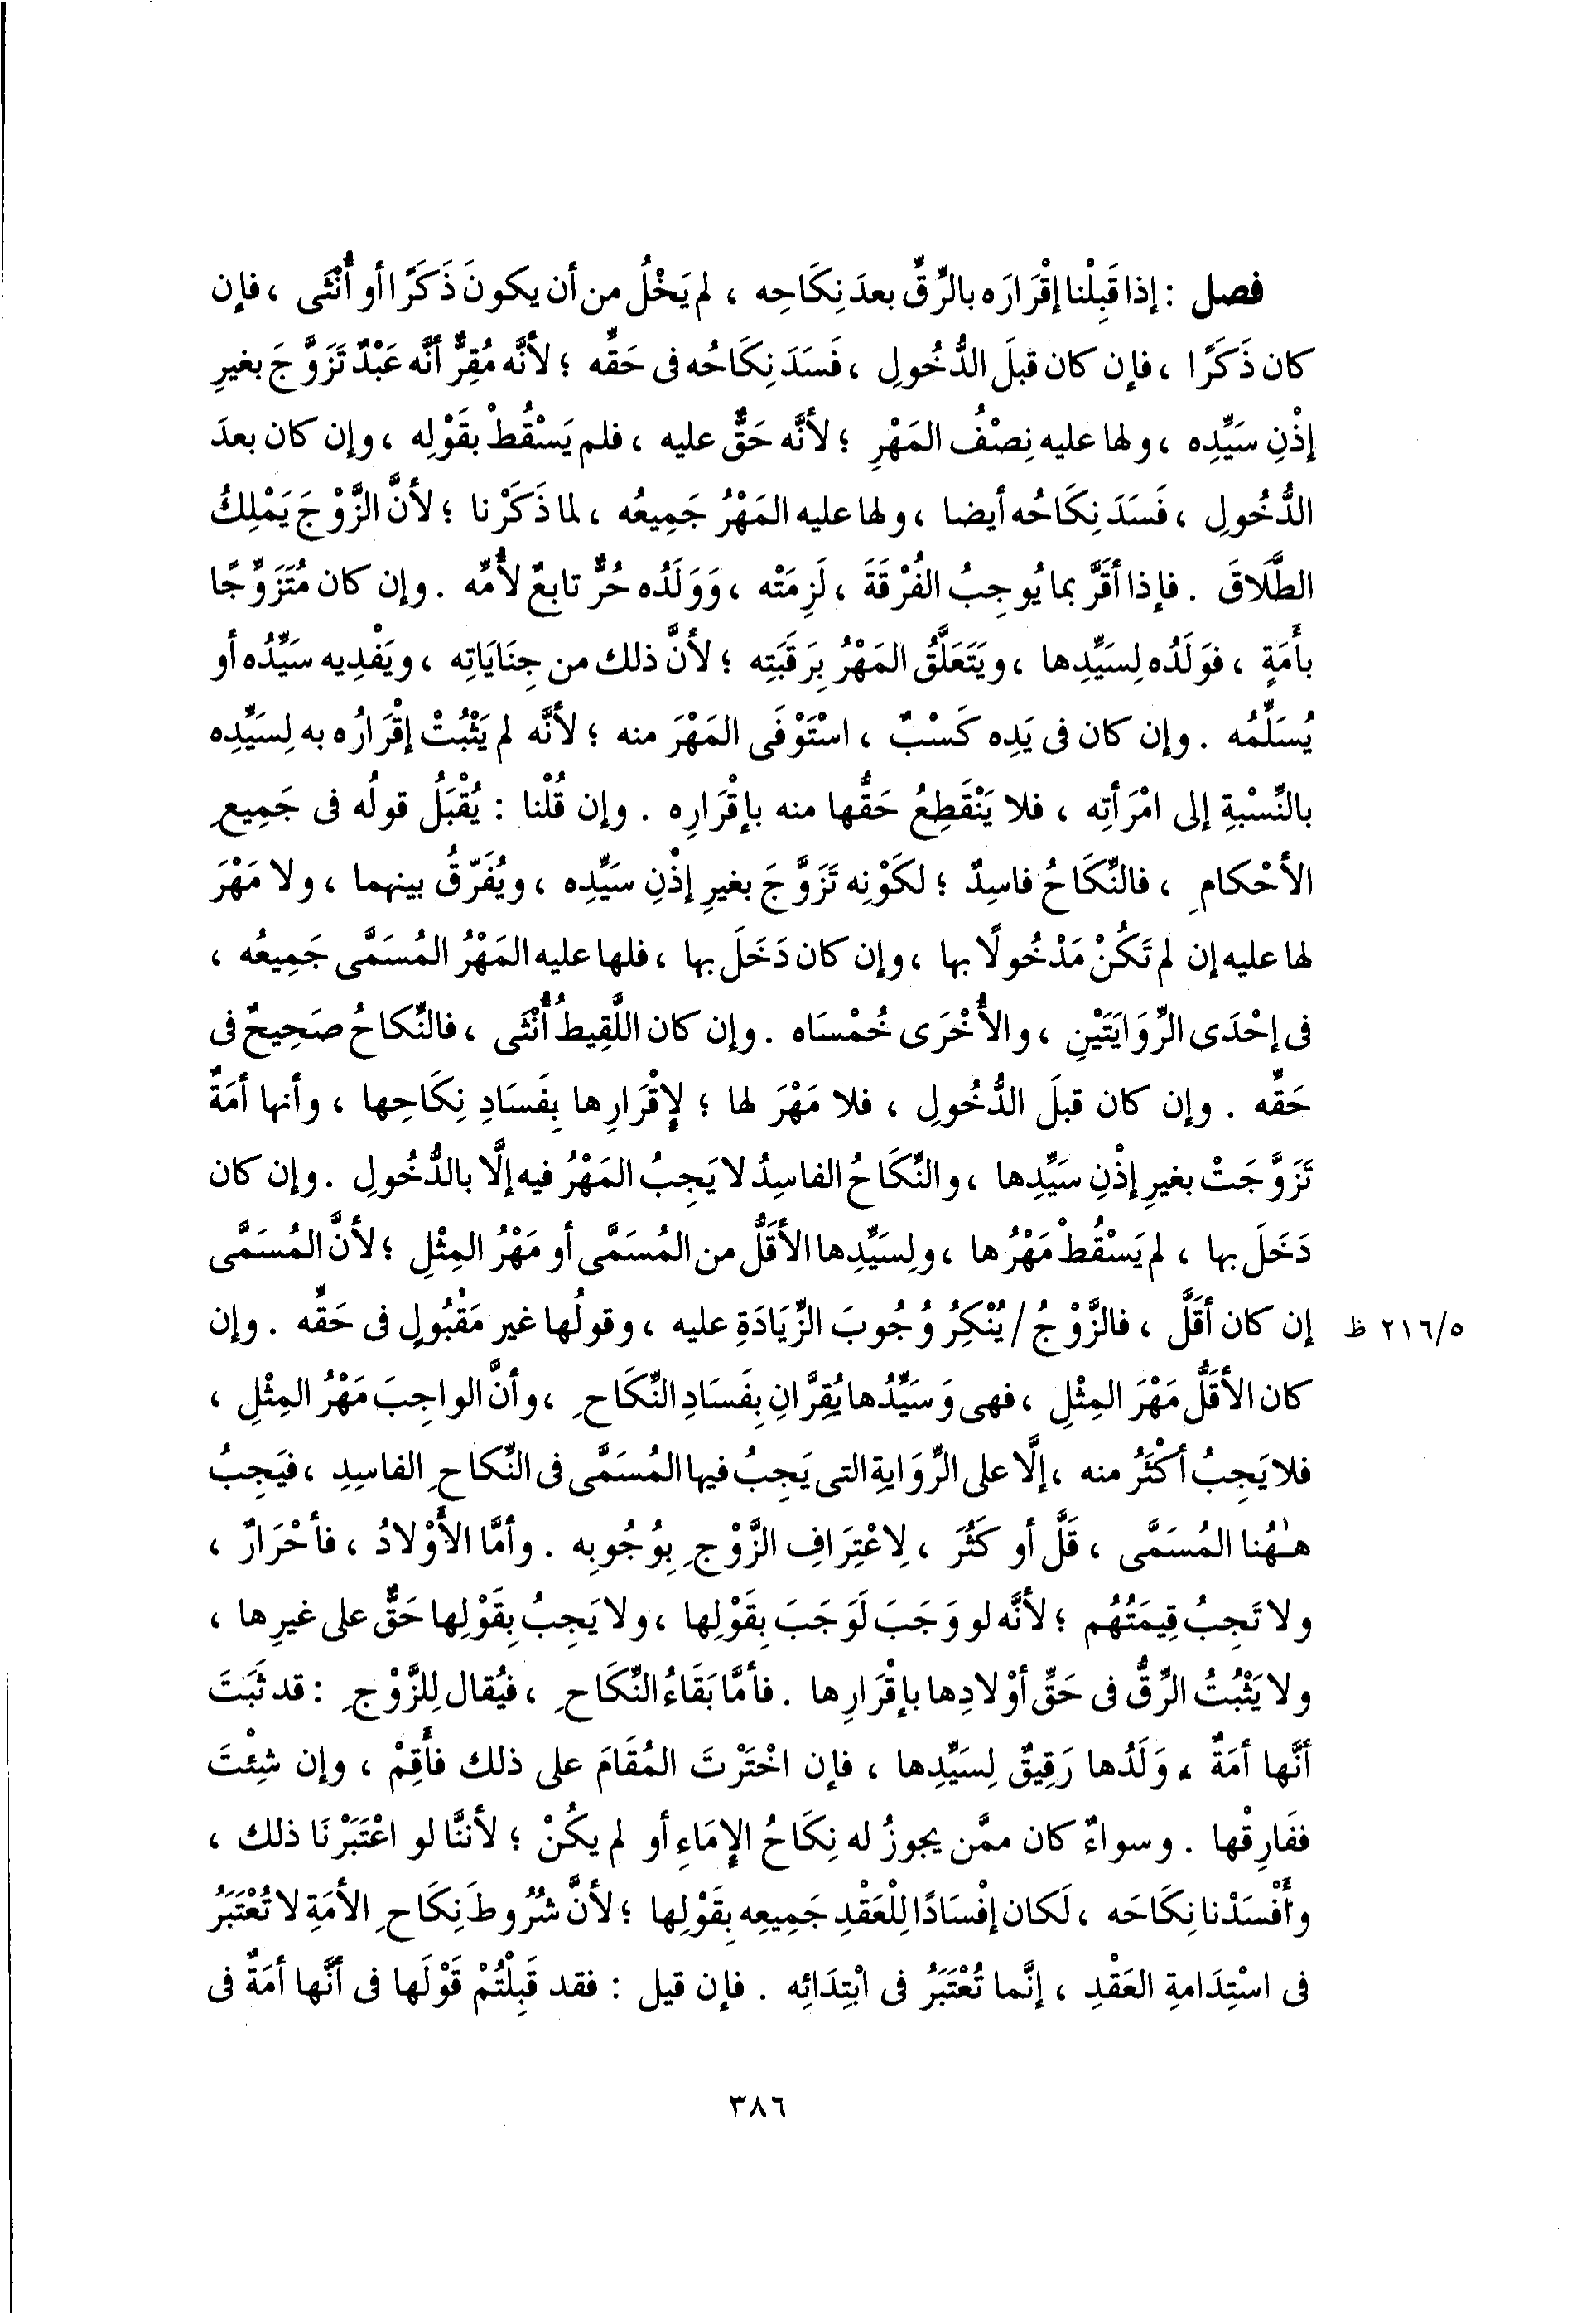 فصل : إذا قَبِلْنا إقْرَارَه بالرِّقِّ بعدَ نِكَاحِه ، لم يَخْلُ من أن يكونَ ذَكَرًا أو أُنْثَى ، فإن
كان ذَكَرًا ، فإن كان قبلَ الدُّخُولِ ، فَسَدَ نِكَاحُه فى حَقِّه ؛ لأنَّه مُقِرٌّ أنَّه عَبْدٌ تَزَوَّجَ بغيرِ
إذْنِ سَيِّدِه ، ولها عليه نِصْفُ المَهْرِ ؛ لأنَّه حَقٌّ عليه ، فلم يَسْقُطْ بقَوْلِه ، وإن كان بعدَ
الدُّخُولِ ، فَسَدَ نِكَاحُه أيضا ، ولها عليه المَهْرُ جَمِيعُه ، لما ذَكَرْنا ؛ لأنَّ الزَّوْجَ يَمْلِكُ
الطَّلَاقَ . فإذا أقَرَّ بما يُوجِبُ الفُرْقَةَ ، لَزِمَتْه ، وَوَلَدُه حُرٌّ تابعٌ لأُمِّه . وإن كان مُتَزَوِّجًا
بأَمَةٍ ، فوَلَدُه لِسَيِّدِها ، ويَتَعَلَّقُ المَهْرُ بِرَقَبَتِه ؛ لأنَّ ذلك من جِنَايَاتِه ، ويَفْدِيه سَيِّدُه أو
يُسَلِّمُه . وإن كان فى يَدِه كَسْبٌ ، اسْتَوْفَى المَهْرَ منه ؛ لأنَّه لم يَثْبُتْ إقْرَارُه به لِسَيِّدِه
بالنِّسْبةِ إلى امْرَأتِه ، فلا يَنْقَطِعُ حَقُّها منه بإقْرَارِه . وإن قُلْنا : يُقْبَلُ قولُه فى جَمِيعِ
الأحْكامِ ، فالنِّكَاحُ فاسِدٌ ؛ لكَوْنِه تَزَوَّجَ بغيرِ إذْنِ سَيِّدِه ، ويُفَرّقُ بينهما ، ولا مَهْرَ
لها عليه إن لم تَكُنْ مَدْخُولًا بها ، وإن كان دَخَلَ بها ، فلها عليه المَهْرُ المُسَمَّى جَمِيعُه ،
فى إحْدَى الرِّوَايَتَيْنِ ، والأُخْرَى خُمْسَاه . وإن كان اللَّقِيطُ أُنْثَى ، فالنِّكاحُ صَحِيحٌ فى
حَقِّه . وإن كان قبلَ الدُّخُولِ ، فلا مَهْرَ لها ؛ لإِقْرَارِها بِفَسَادِ نِكَاحِها ، وأنها أمَةٌ
تَزَوَّجَتْ بغيرِ إذْنِ سَيِّدِها ، والنِّكَاحُ الفاسِدُ لا يَجِبُ المَهْرُ فيه إلَّا بالدُّخُولِ . وإن كان
دَخَلَ بها ، لم يَسْقُطْ مَهْرُها ، ولِسَيِّدِها الأقَلُّ من المُسَمَّى أو مَهْرُ المِثْلِ ؛ لأنَّ المُسَمَّى
إن كان أقَلَّ ، فالزَّوْجُ / يُنْكِرُ وُجُوبَ الزِّيَادَةِ عليه ، وقولُها غير مَقْبُولٍ فى حَقِّه . وإن
٥/ ٢١٦ ظ
كان الأقَلُّ مَهْرَ المِثْلِ ، فهى وَسَيِّدُها يُقِرَّانِ بِفَسَادِ النِّكَاحِ ، وأنَّ الواجِبَ مَهْرُ المِثْلِ ،
فلا يَجِبُ أكْثَرُ منه ، إلَّا على الرِّوَايةِ التى يَجِبُ فيها المُسَمَّى فى النِّكاحِ الفاسِدِ ، فيَجِبُ
هـٰهُنا المُسَمَّى ، قَلَّ أو كَثُرَ ، لِاعْتِرَافِ الزَّوْجِ بِوُجُوبِه . وأمَّا الأَوْلادُ ، فأحْرَارٌ ،
ولا تَجِبُ قِيمَتُهُم ؛ لأنَّه لو وَجَبَ لَوَجَبَ بِقَوْلِها ، ولا يَجِبُ بِقَوْلِها حَقٌّ على غيرِها ،
ولا يَثْبُتُ الرِّقُّ فى حَقِّ أوْلادِها بإقْرَارِها . فأمَّا بَقَاءُ النِّكَاحِ ، فيُقال لِلزَّوْجِ : قد ثَبَتَ
أنَّها أمَةٌ ، وَلَدُها رَقِيقٌ لِسَيِّدِها ، فإن اخْتَرْتَ المُقَامَ على ذلك فأَقِمْ ، وإن شِئْتَ
ففَارِقْها . وسواءٌ كان ممَّن يجوزُ له نِكَاحُ الإِمَاءِ أو لم يكُنْ ؛ لأننَّا لو اعْتَبَرْنَا ذلك ،
وأَفْسَدْنا نِكَاحَه ، لَكان إفْسَادًا لِلْعَقْدِ جَمِيعِه بِقَوْلِها ؛ لأنَّ شُرُوطَ نِكَاحِ الأمَةِ لا تُعْتَبَرُ
فى اسْتِدَامةِ العَقْدِ ، إنَّما تُعْتَبَرُ فى ابْتِدَائِه . فإن قيل : فقد قَبِلْتُمْ قَوْلَها فى أنَّها أمَةٌ فى
٣٨٦